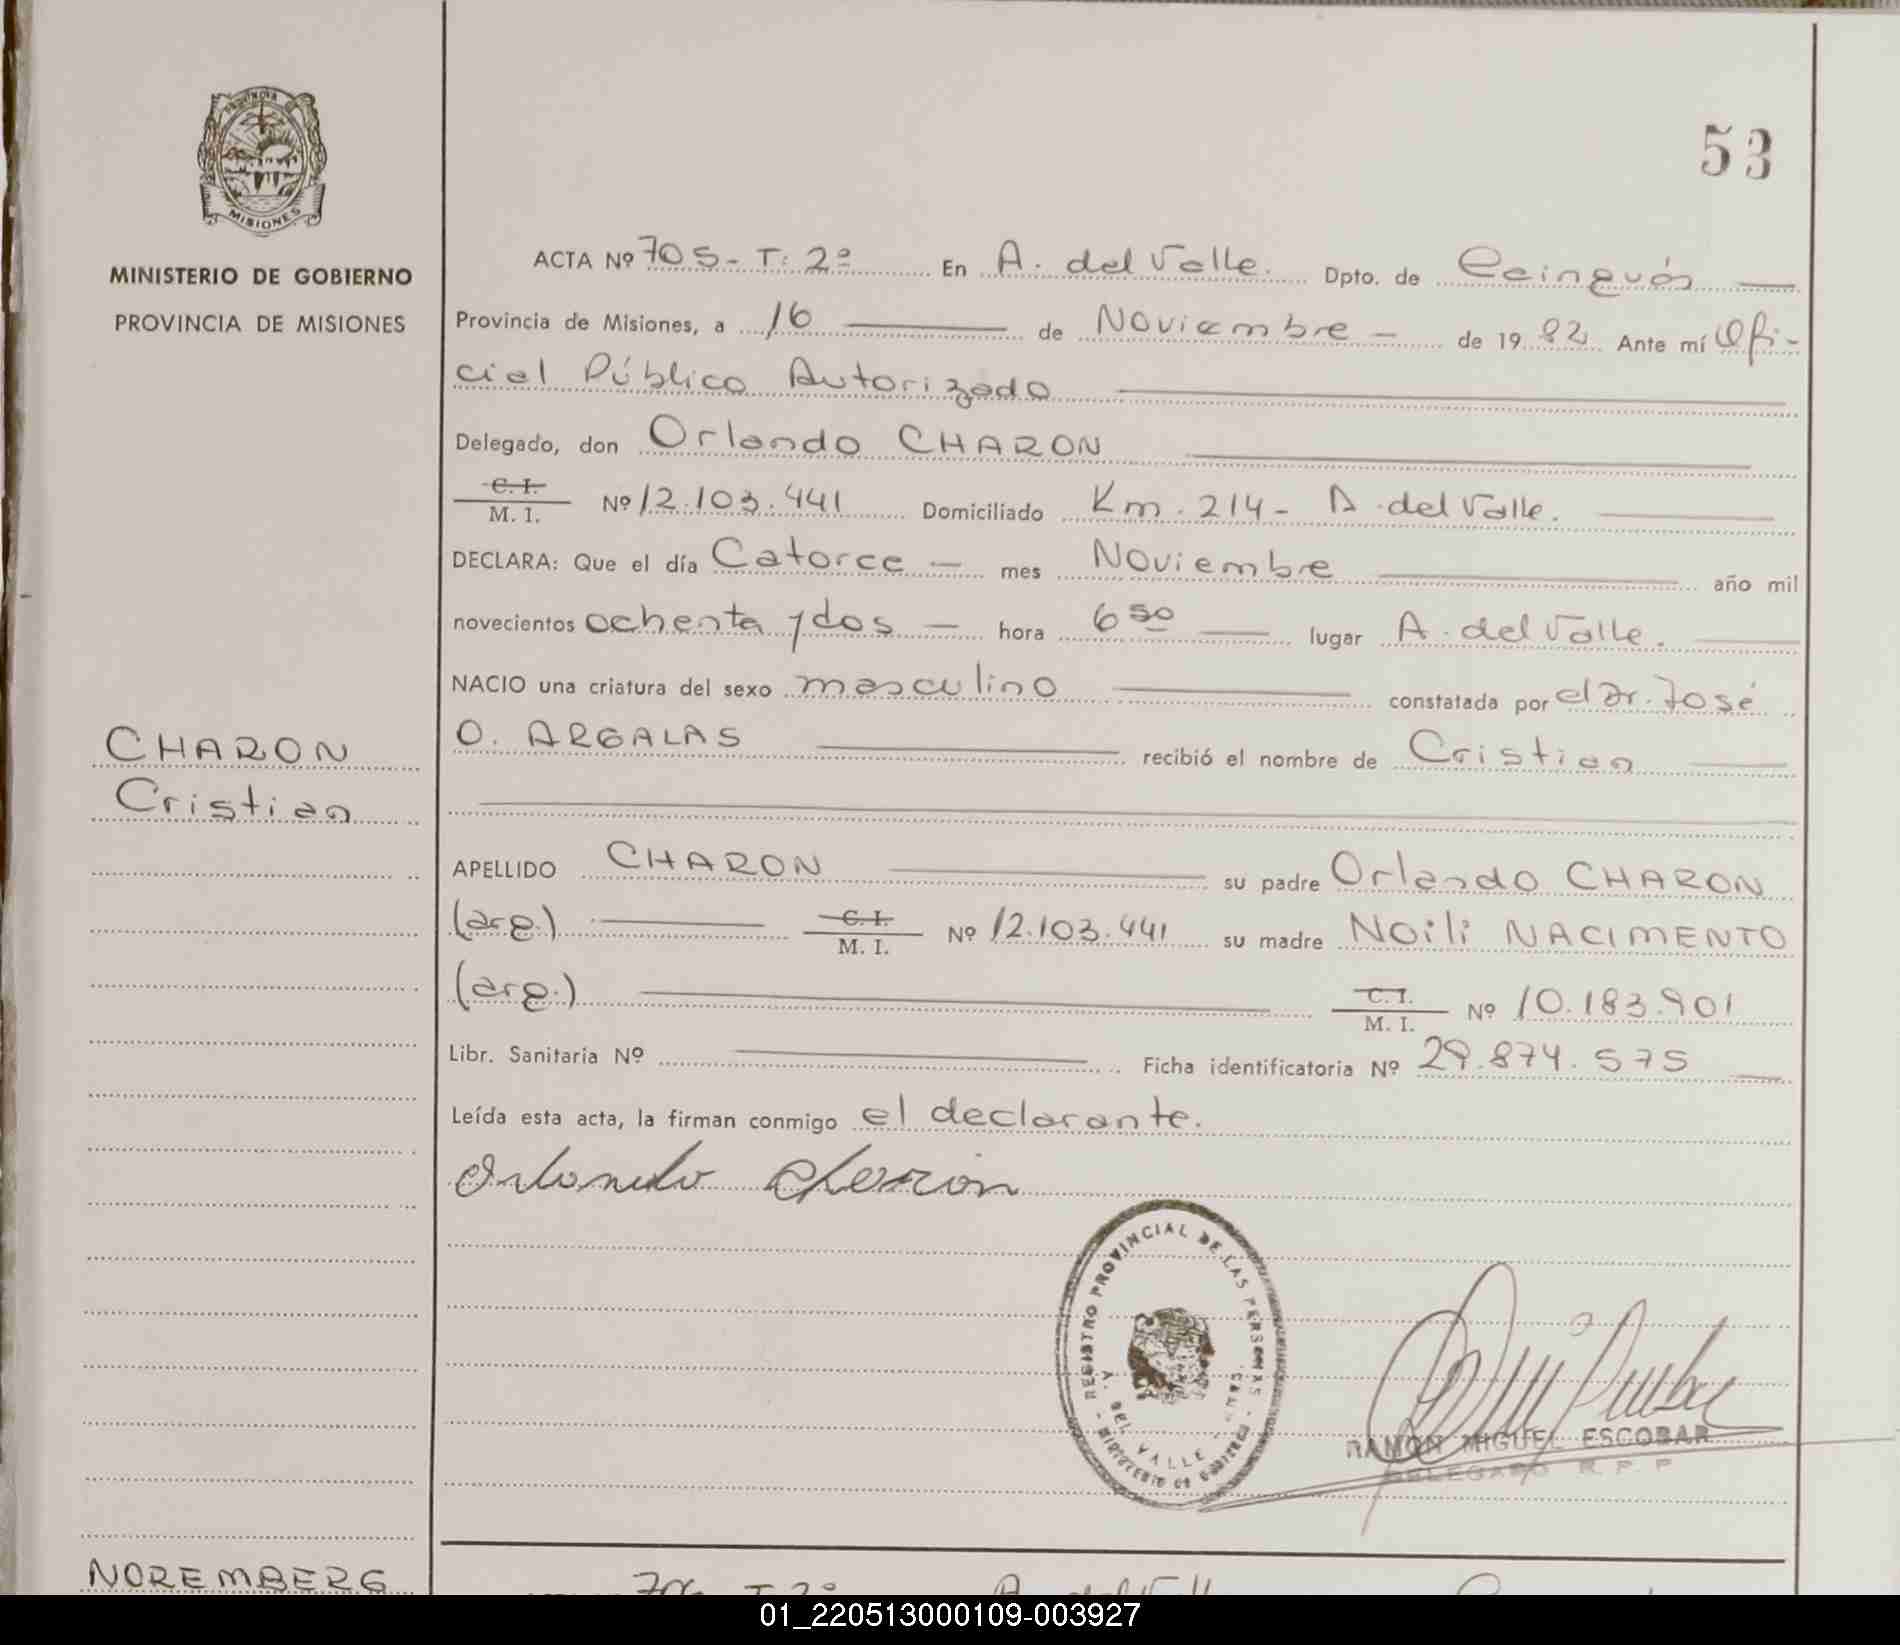 53
PROVINCIA
MISIONES
MINISTERIO DE GOBIERNO
PROVINCIA DE MISIONES
ACTA Nº 705- T: 2º En A. del Valle. Dpto. de Cainguás
Provincia de Misiones, a 16 de Noviembre - de 1982 Ante mí Ofi-
cial Público Autorizado
Delegado, don Orlando CHARON
C. I.
M. I. Nº 12.103.441 Domiciliado Km. 214- A. del Valle.
DECLARA: Que el día Catorce - mes Noviembre año mil
novecientos ochenta y dos - hora 6 30 lugar A. del Valle.
NACIO una criatura del sexo masculino constatada por el Dr. José
O. ARGALAS recibió el nombre de Cristian
CHARON
Cristian
APELLIDO CHARON su padre Orlando CHARON
(arg.) C. I.
M. I. Nº 12.103.441 su madre Noili NACIMENTO
(arg.) C. I.
M. I. Nº 10.183.901
Libr. Sanitaria Nº Ficha identificatoria Nº 29.874.575
Leída esta acta, la firman conmigo el declarante.
Orlando Charon
REGISTRO PROVINCIAL DE LAS PERSONAS
A. DEL VALLE
MINISTERIO DE GOBIERNO
RAMON MIGUEL ESCOBAR
DELEGADO R. P. P.
NOREMBERG
706 T. 2º A. del Valle
01_220513000109-003927